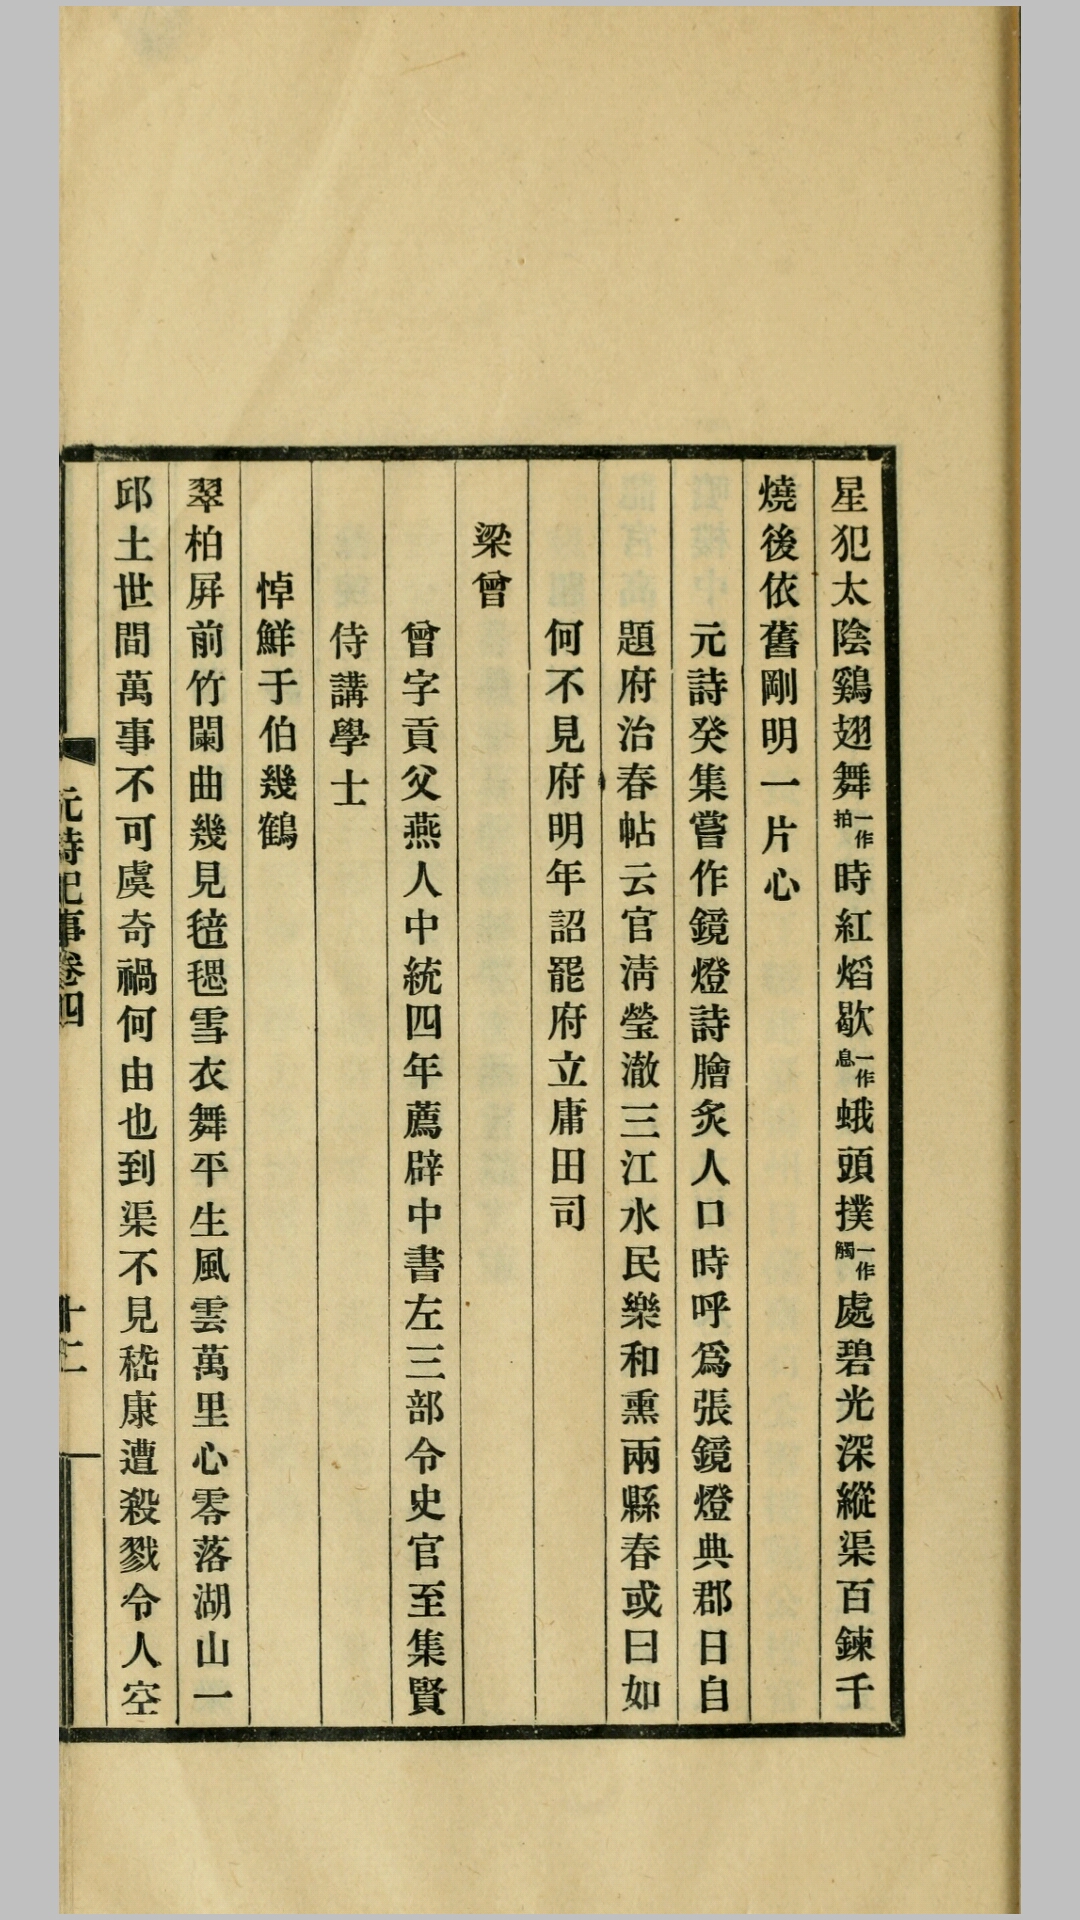 星犯太陰鷄翅舞一作拍時紅熖歇一作息蛾頭撲一作觸處碧光深縱渠百鍊千
燒後依舊剛明一片心
元詩癸集嘗作鏡燈詩膾炙人口時呼爲張鏡燈典郡日自
題府治春帖云官淸瑩澈三江水民樂和熏兩縣春或曰如
何不見府明年詔罷府立庸田司
梁曾
曾字貢父燕人中統四年薦辟中書左三部令史官至集賢
侍講學士
悼鮮于伯幾鶴
翠柏屛前竹闌曲幾見毰毸雪衣舞平生風雲萬里心零落湖山一
邱土世間萬事不可虞奇禍何由也到渠不見嵇康遭殺戮令人空
元詩紀事卷四
十二